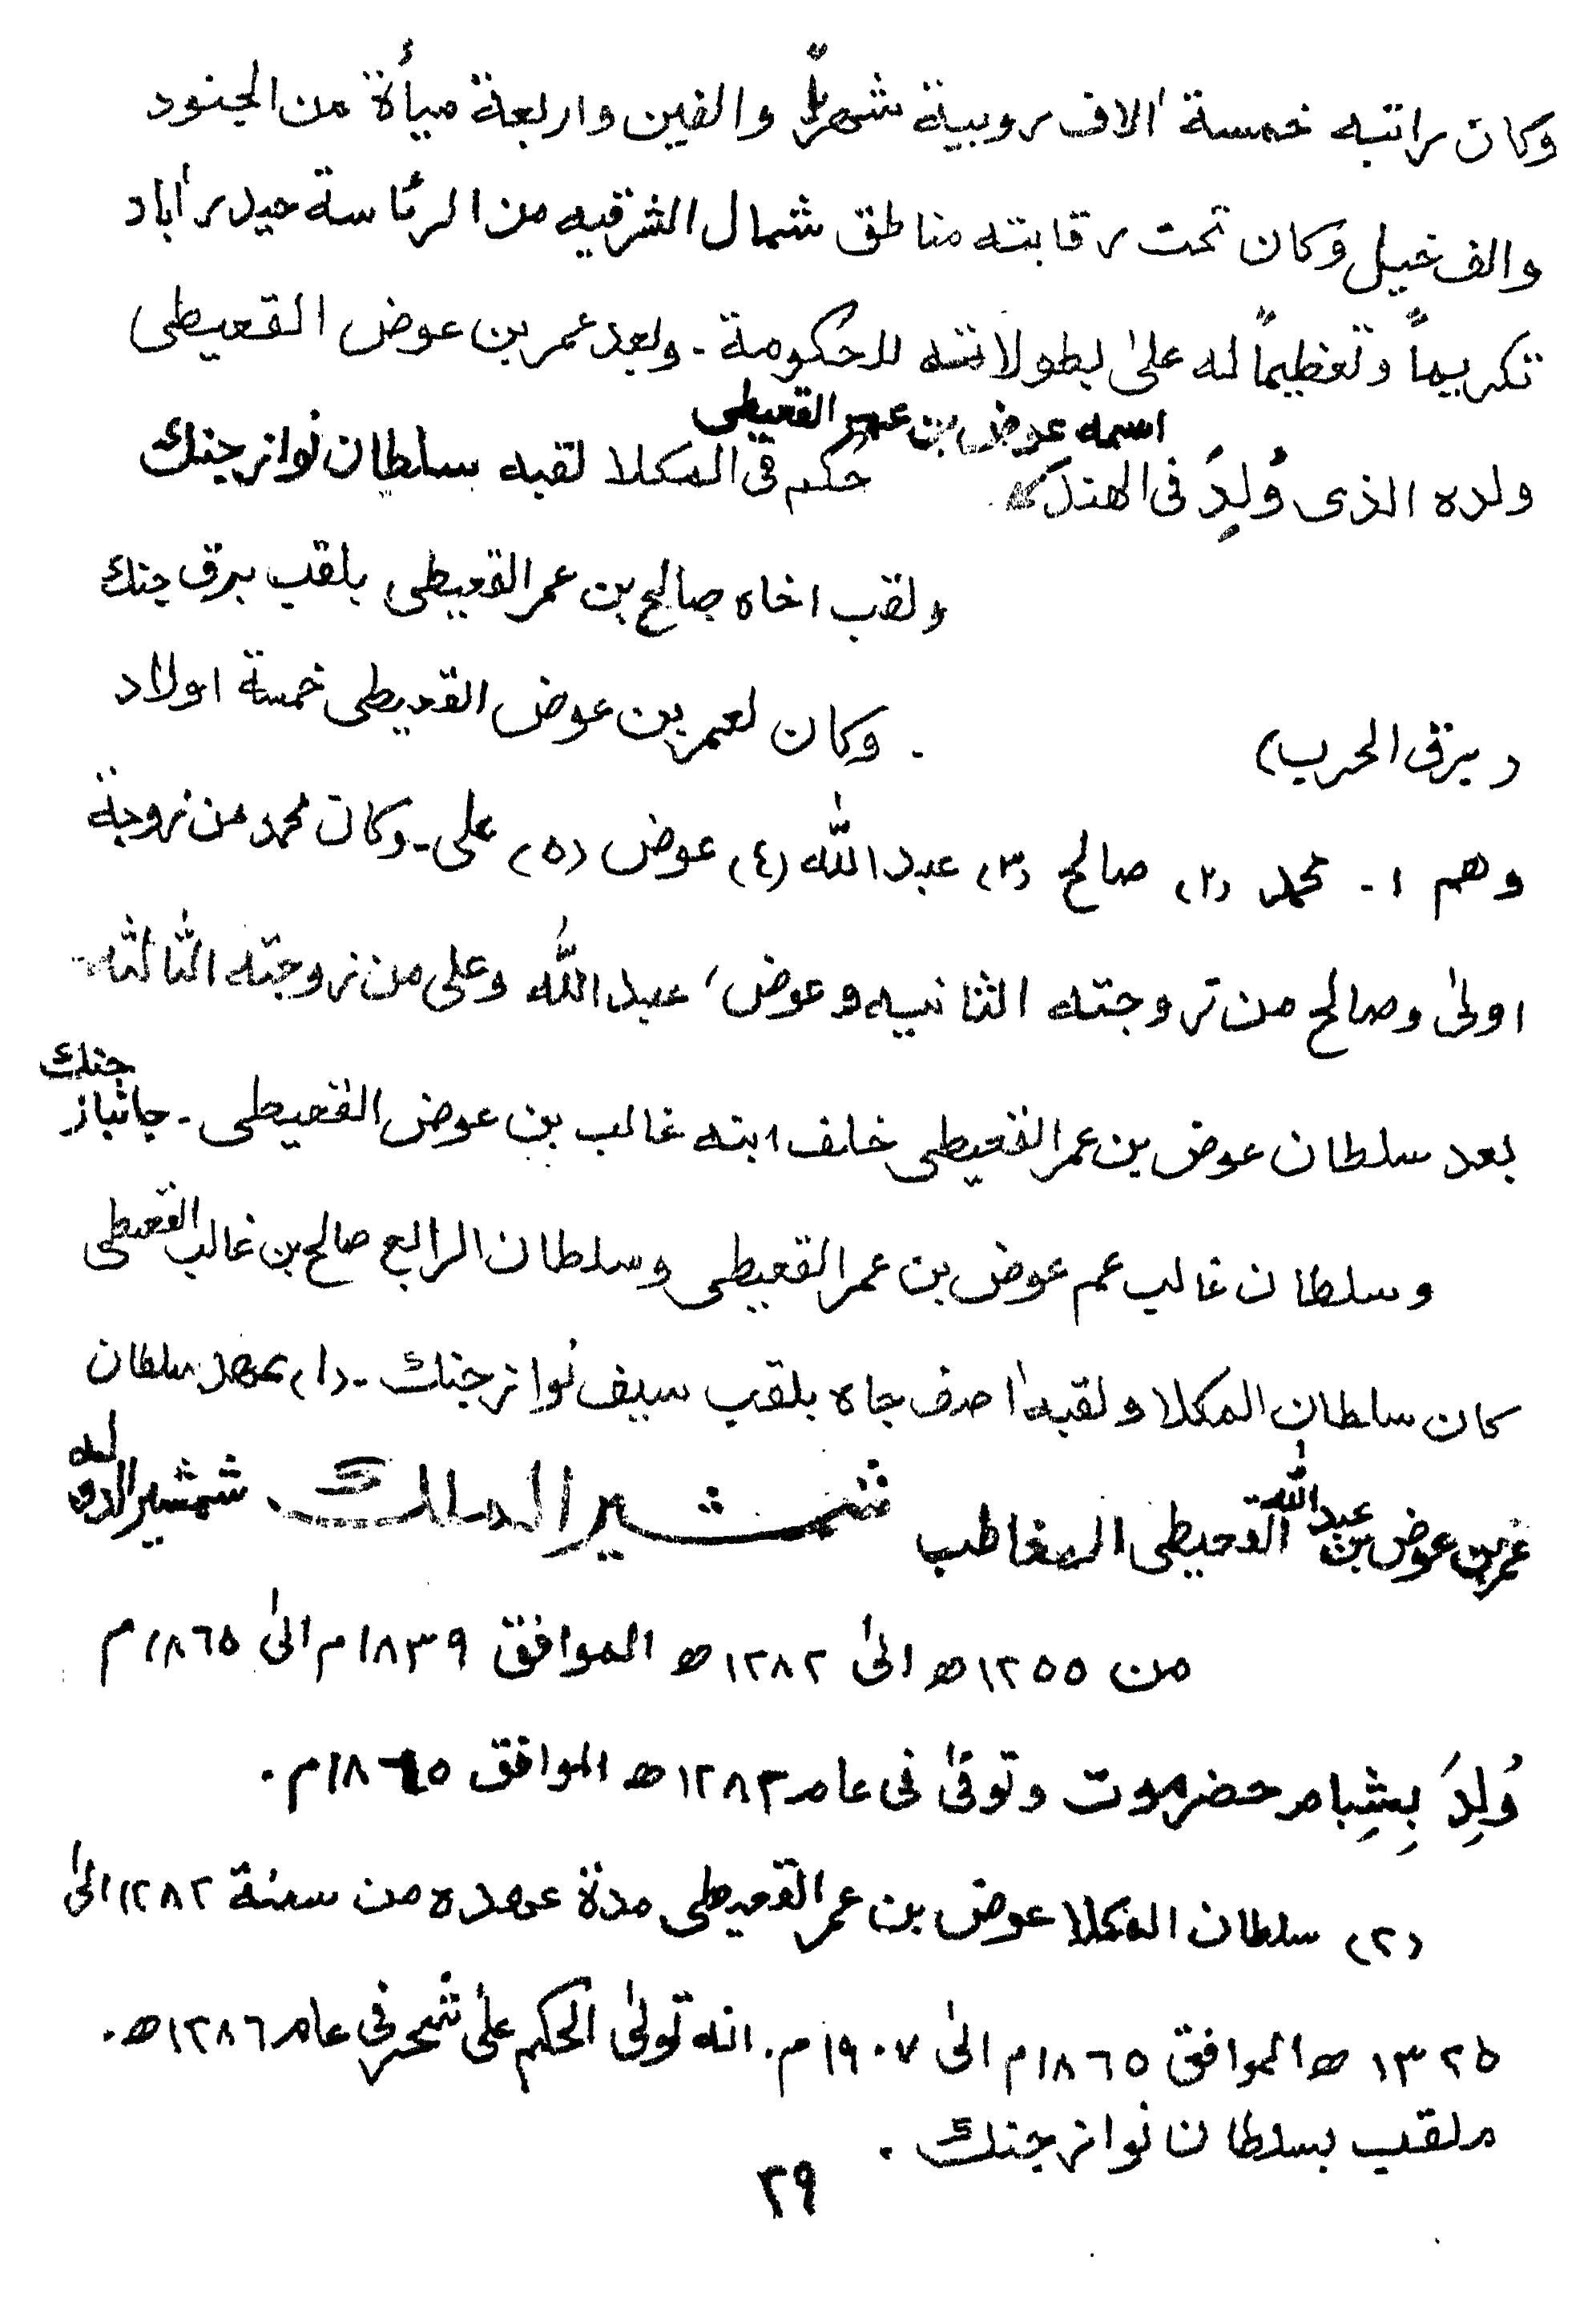 وكان راتبه خمسة الاف روبية شهرياً والفين واربعة ميأة من الجنود
والف خيل وكان تحت رقابته مناطق شمال الشرقيه من الرئاسة حيدرآباد
تكريماً وتعظيماً له على بطولاته للحكومة - وبعد عمر بن عوض القعيطى
اسمه عوض بن عمر القعيطى
ولده الذى وُلِدَ فى الهند حُكم فى المكلا لقبه سلطان نواز جنك
ولقب اخاه صالح بن عمر القعيطى بلقب برق جنك
(برق الحرب) . وكان لعمر بن عوض القعيطى خمسة اولاد
وهم ١- محمد (٢) صالح (٣) عبدالله (٤) عوض (٥) على - وكان محمد من زوجة
اولىٰ وصالح من زوجته الثانيه وعوض، عبدالله وعلى من زوجته الثالثه
بعد سلطان عوض بن عمر القعيطى خلف ابنه غالب بن عوض القعيطى - جانباز جنك
وسلطان غالب عم عوض بن عمر القعيطى وسلطان الرابع صالح بن غالب القعيطى
كان سلطان المكلا ولقبه اصف جاه بلقب سيف نواز جنك - (١) عهد سلطان
عمر بن عوض بن عبدالله القعيطى المخاطب شمشير الملك . شمشير الدوله
من ١٢٥٥ھ الىٰ ١٢٨٢ھ الموافق ١٨٣٩م الىٰ ١٨٦٥م
وُلِدَ بِشِبام حضرموت وتوفىٰ فى عام ١٢٨٢ھ الموافق ١٨٦٥م .
(٢) سلطان المكلا عوض بن عمر القعيطى مدة عهده من سنة ١٢٨٢ الىٰ
١٣٢٥ھ الموافق ١٨٦٥م الىٰ ١٩٠٧م. انه تولىٰ الحكم علىٰ شحر فى عام ١٢٨٦ھ .
ملقب بسلطان نواز جنك .
٢٩